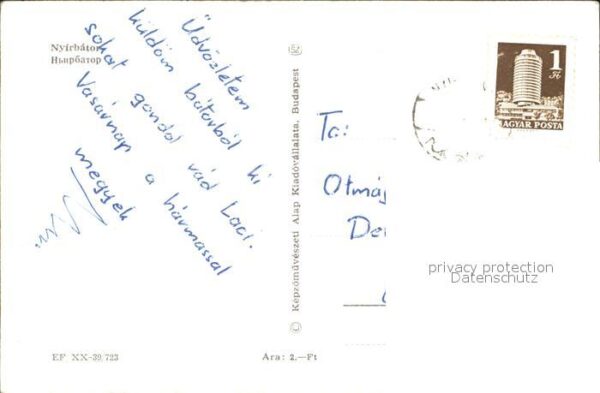 Nyírbátor
Ньирбатор
Üdvözletem
küldöm bátorból ki
sokat gondol rád Laci.
Vasárnap a hármassal
megyek
52
Képzőművészeti Alap Kiadóvállalata, Budapest
1
Ft
MAGYAR POSTA
Ta:
Otmá
De
privacy protection
Datenschutz
EF XX-39.723
Ára: 2.—Ft